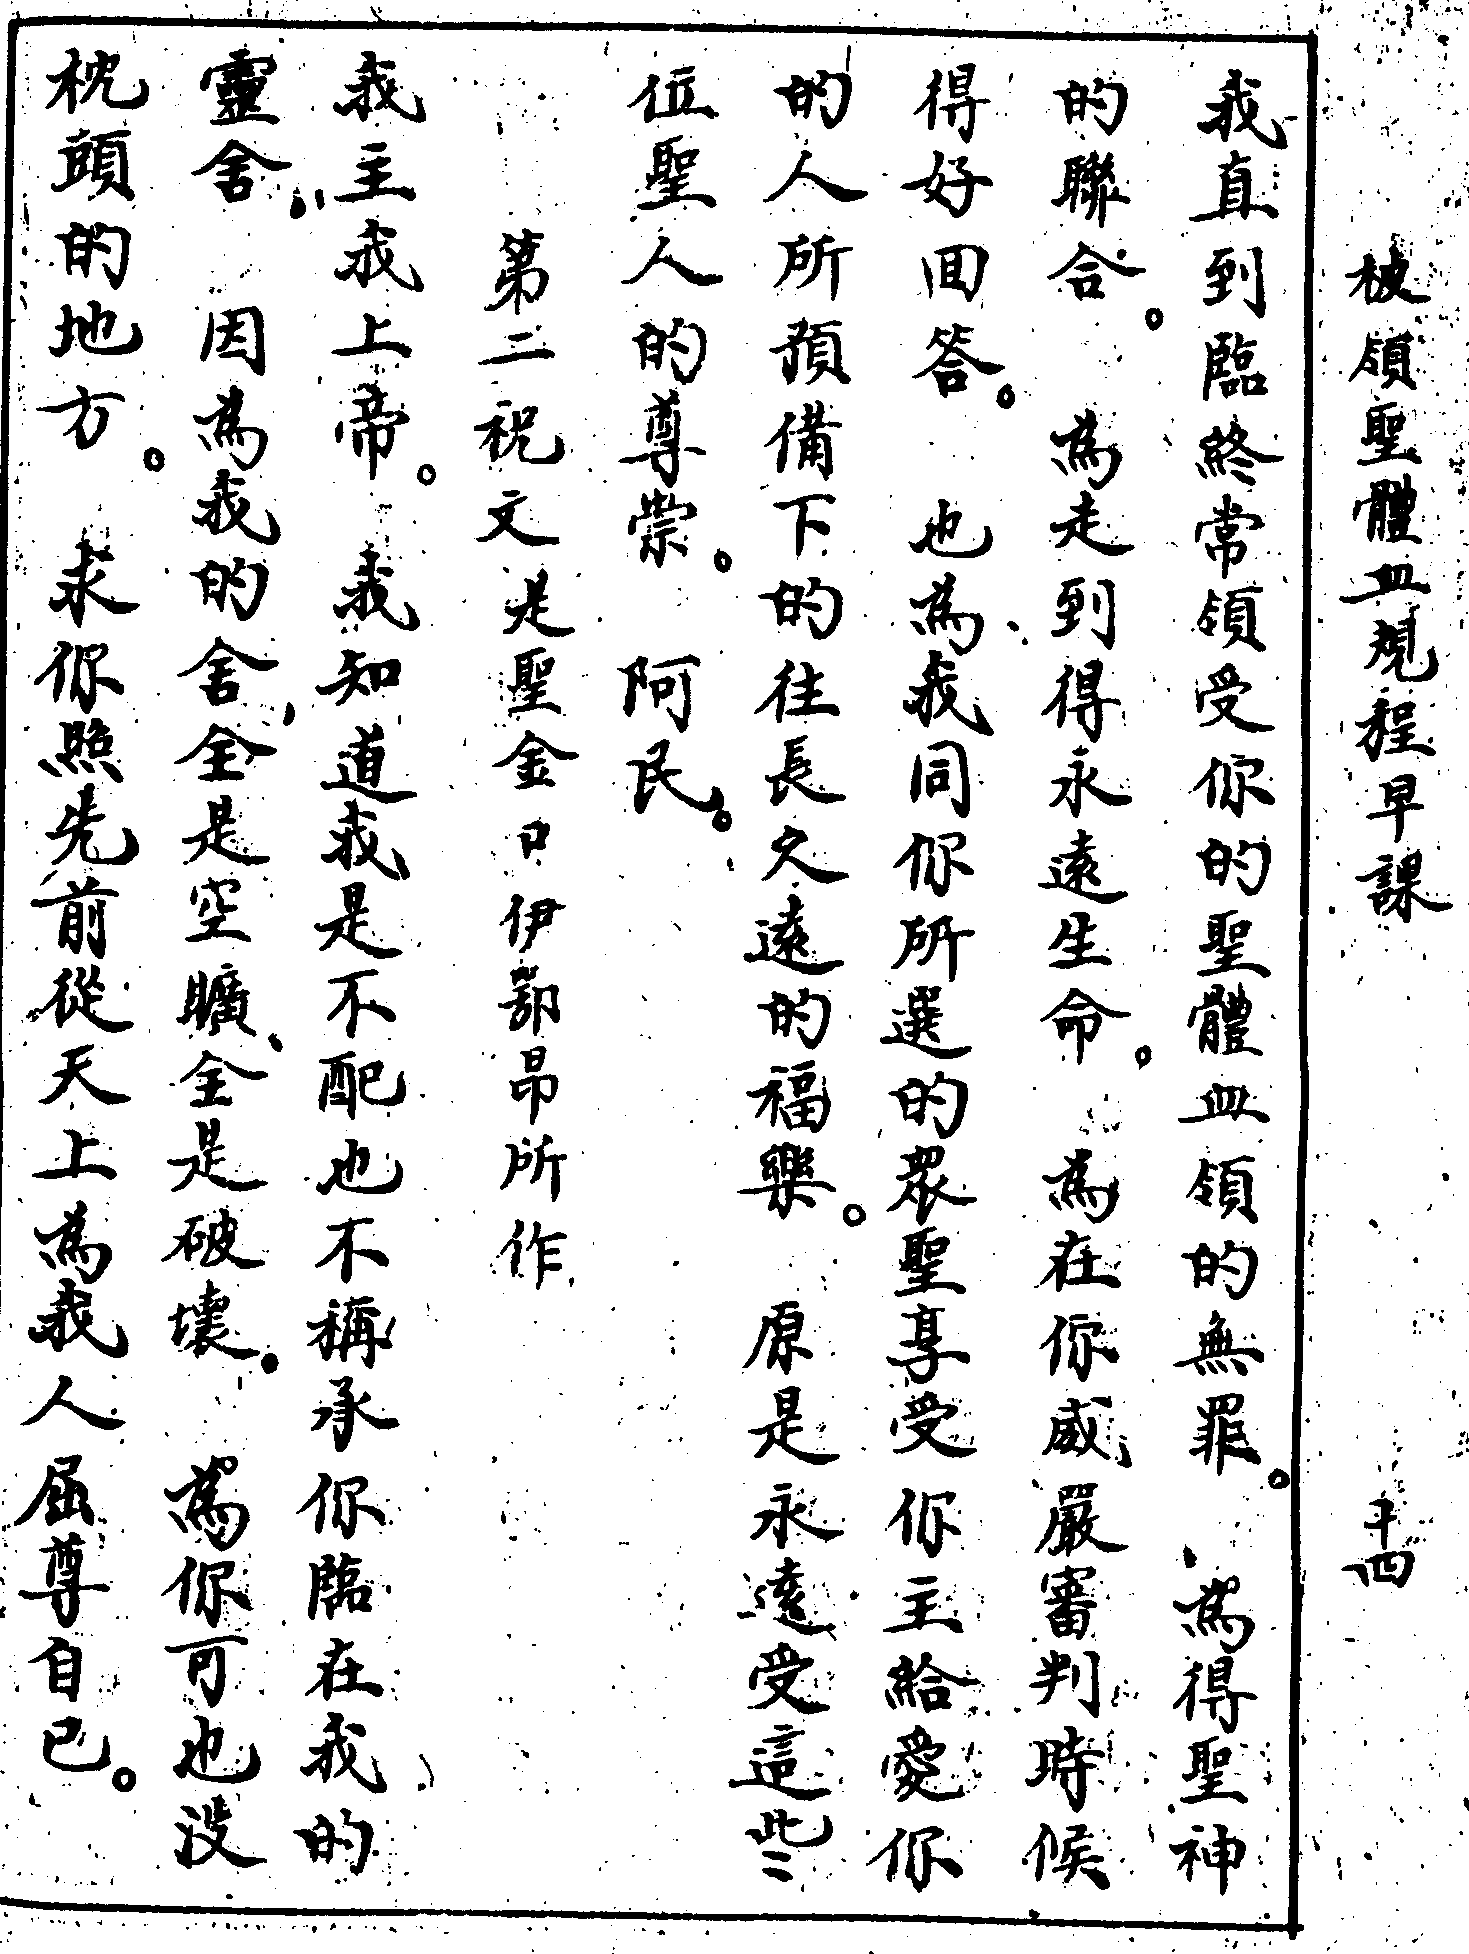 被領聖體血規程早課 二十四
我直到臨終常領受你的聖體血領的無罪。為得聖神
的聯合。為走到得永遠生命。為在你威嚴審判時候
得好回答。也為我同你所選的眾聖享受你主給愛你
的人所預備下的往長久遠的福樂。原是永遠受這些
位聖人的尊崇。阿民。
第二祝文是聖金口伊鄂昂所作
我主我上帝。我知道我是不配也不稱承你臨在我的
靈舍、因為我的舍、全是空曠、全是破壞。為你可也沒
枕頭的地方。求你照先前從天上為我人屈尊自己。